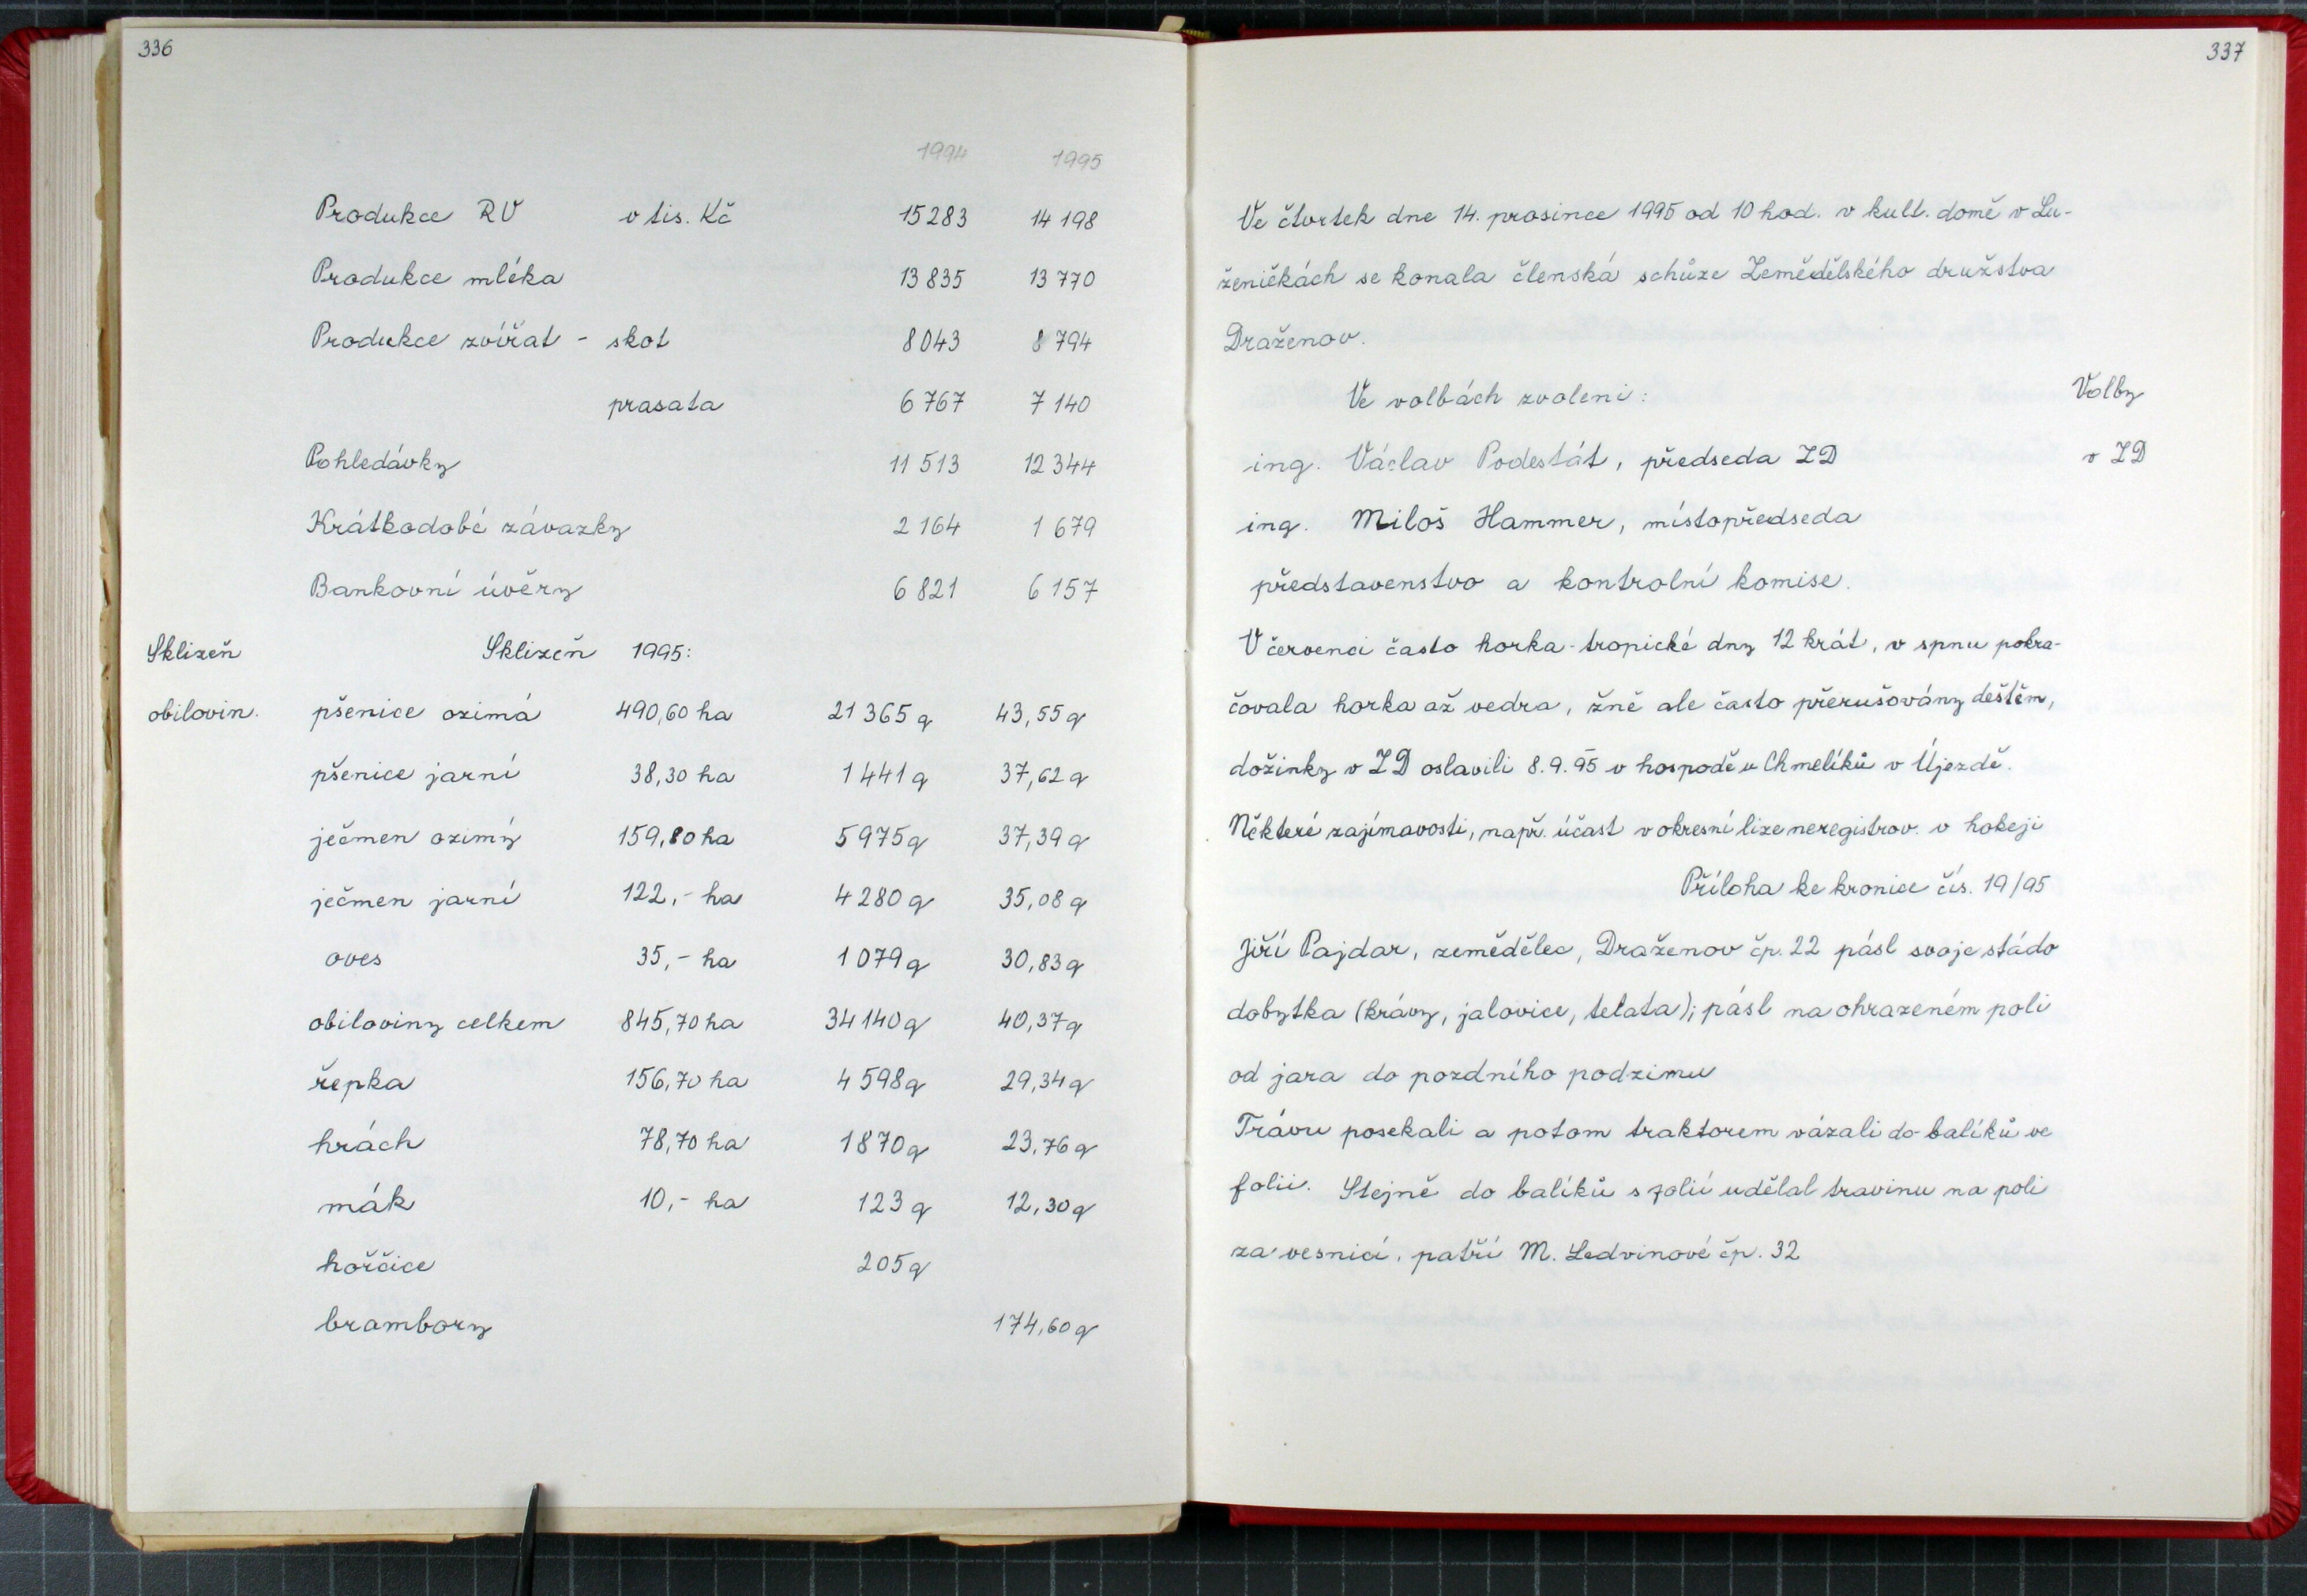 336
1994 1995
Produkce RV v tis. Kč 15 283 14 198
Produkce mléka 13 835 13 770
Produkce zvířat - skot 8 043 8 794
prasata 6 767 7 140
Pohledávky 11 513 12 344
Krátkodobé závazky 2 164 1 679
Bankovní úvěry 6 821 6 157
Sklizeň Sklizeň 1995:
obilovin. pšenice ozimá 490,60 ha 21 365 q 43,55 q
pšenice jarní 38,30 ha 1 441 q 37,62 q
ječmen ozimý 159,80 ha 5 975 q 37,39 q
ječmen jarní 122,- ha 4 280 q 35,08 q
oves 35,- ha 1 079 q 30,83 q
obiloviny celkem 845,70 ha 34 140 q 40,37 q
řepka 156,70 ha 4 598 q 29,34 q
hrách 78,70 ha 1 870 q 23,76 q
mák 10,- ha 123 q 12,30 q
hořčice 205 q
brambory 174,60 q
337
Ve čtvrtek dne 14. prosince 1995 od 10 hod. v kult. domě v Lu-
ženičkách se konala členská schůze Zemědělského družstva
Draženov.
Ve volbách zvoleni: Volby
ing. Václav Podestát, předseda ZD v ZD
ing. Miloš Hammer, místopředseda
představenstvo a kontrolní komise.
V červenci často horka - tropické dny 12 krát, v spnu pokra-
čovala horka až vedra, žně ale často přerušovány deštěm,
dožinky v ZD oslavili 8.9.95 v hospodě u Chmelíků v Újezdě.
Některé zajímavosti, např. účast v okresní lize neregistrov. v hokeji
Příloha ke kronice čís. 19/95
Jiří Pajdar, zemědělec, Draženov čp. 22 pásl svoje stádo
dobytka (krávy, jalovice, telata); pásl na ohrazeném poli
od jara do pozdního podzimu
Trávu posekali a potom traktorem vázali do balíků ve
folii. Stejně do balíků s folií udělal travinu na poli
za vesnicí, patří M. Ledvinové čp. 32